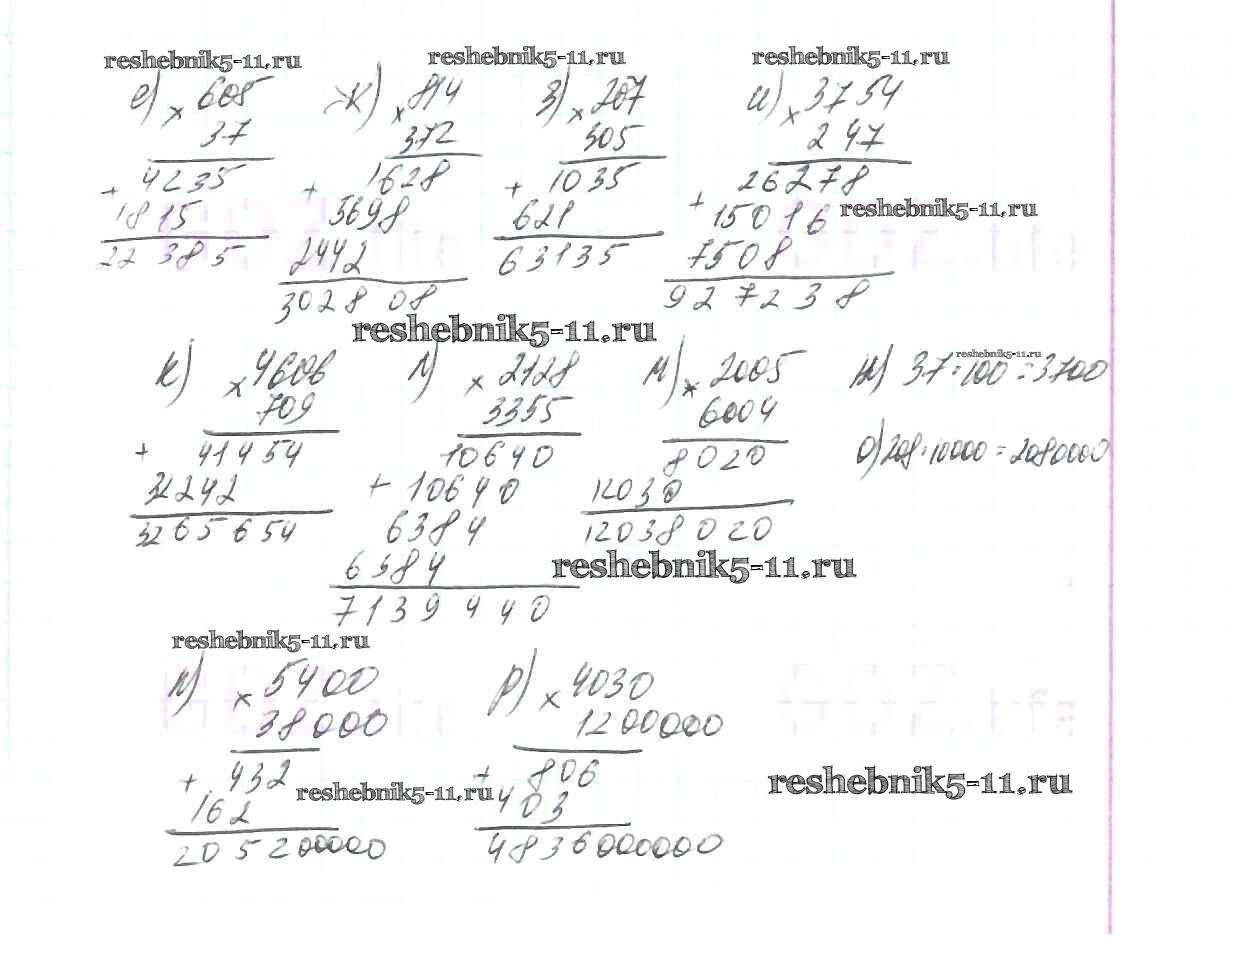 reshebnik5-11.ru reshebnik5-11.ru reshebnik5-11.ru
е) × 605 ж) × 814 з) × 207 и) × 3754
37 372 305 247
4235 1628 1035 26278
+ 1815 + 5698 + 621 + 15016 reshebnik5-11.ru
22385 2442 63135 7508
302808 927238
reshebnik5-11.ru
к) × 4606 л) × 2128 м) × 2005 н) 37·100=3700 reshebnik5-11.ru
709 3355 6004
+ 41454 10640 8020 о) 208·10000=2080000
32242 + 10640 12030
3265654 6384 12038020
6384 reshebnik5-11.ru
7139440
reshebnik5-11.ru
п) × 5400 р) × 4030
38000 1200000
+ 432 + 806 reshebnik5-11.ru
162 reshebnik5-11.ru 403
205200000 4836000000